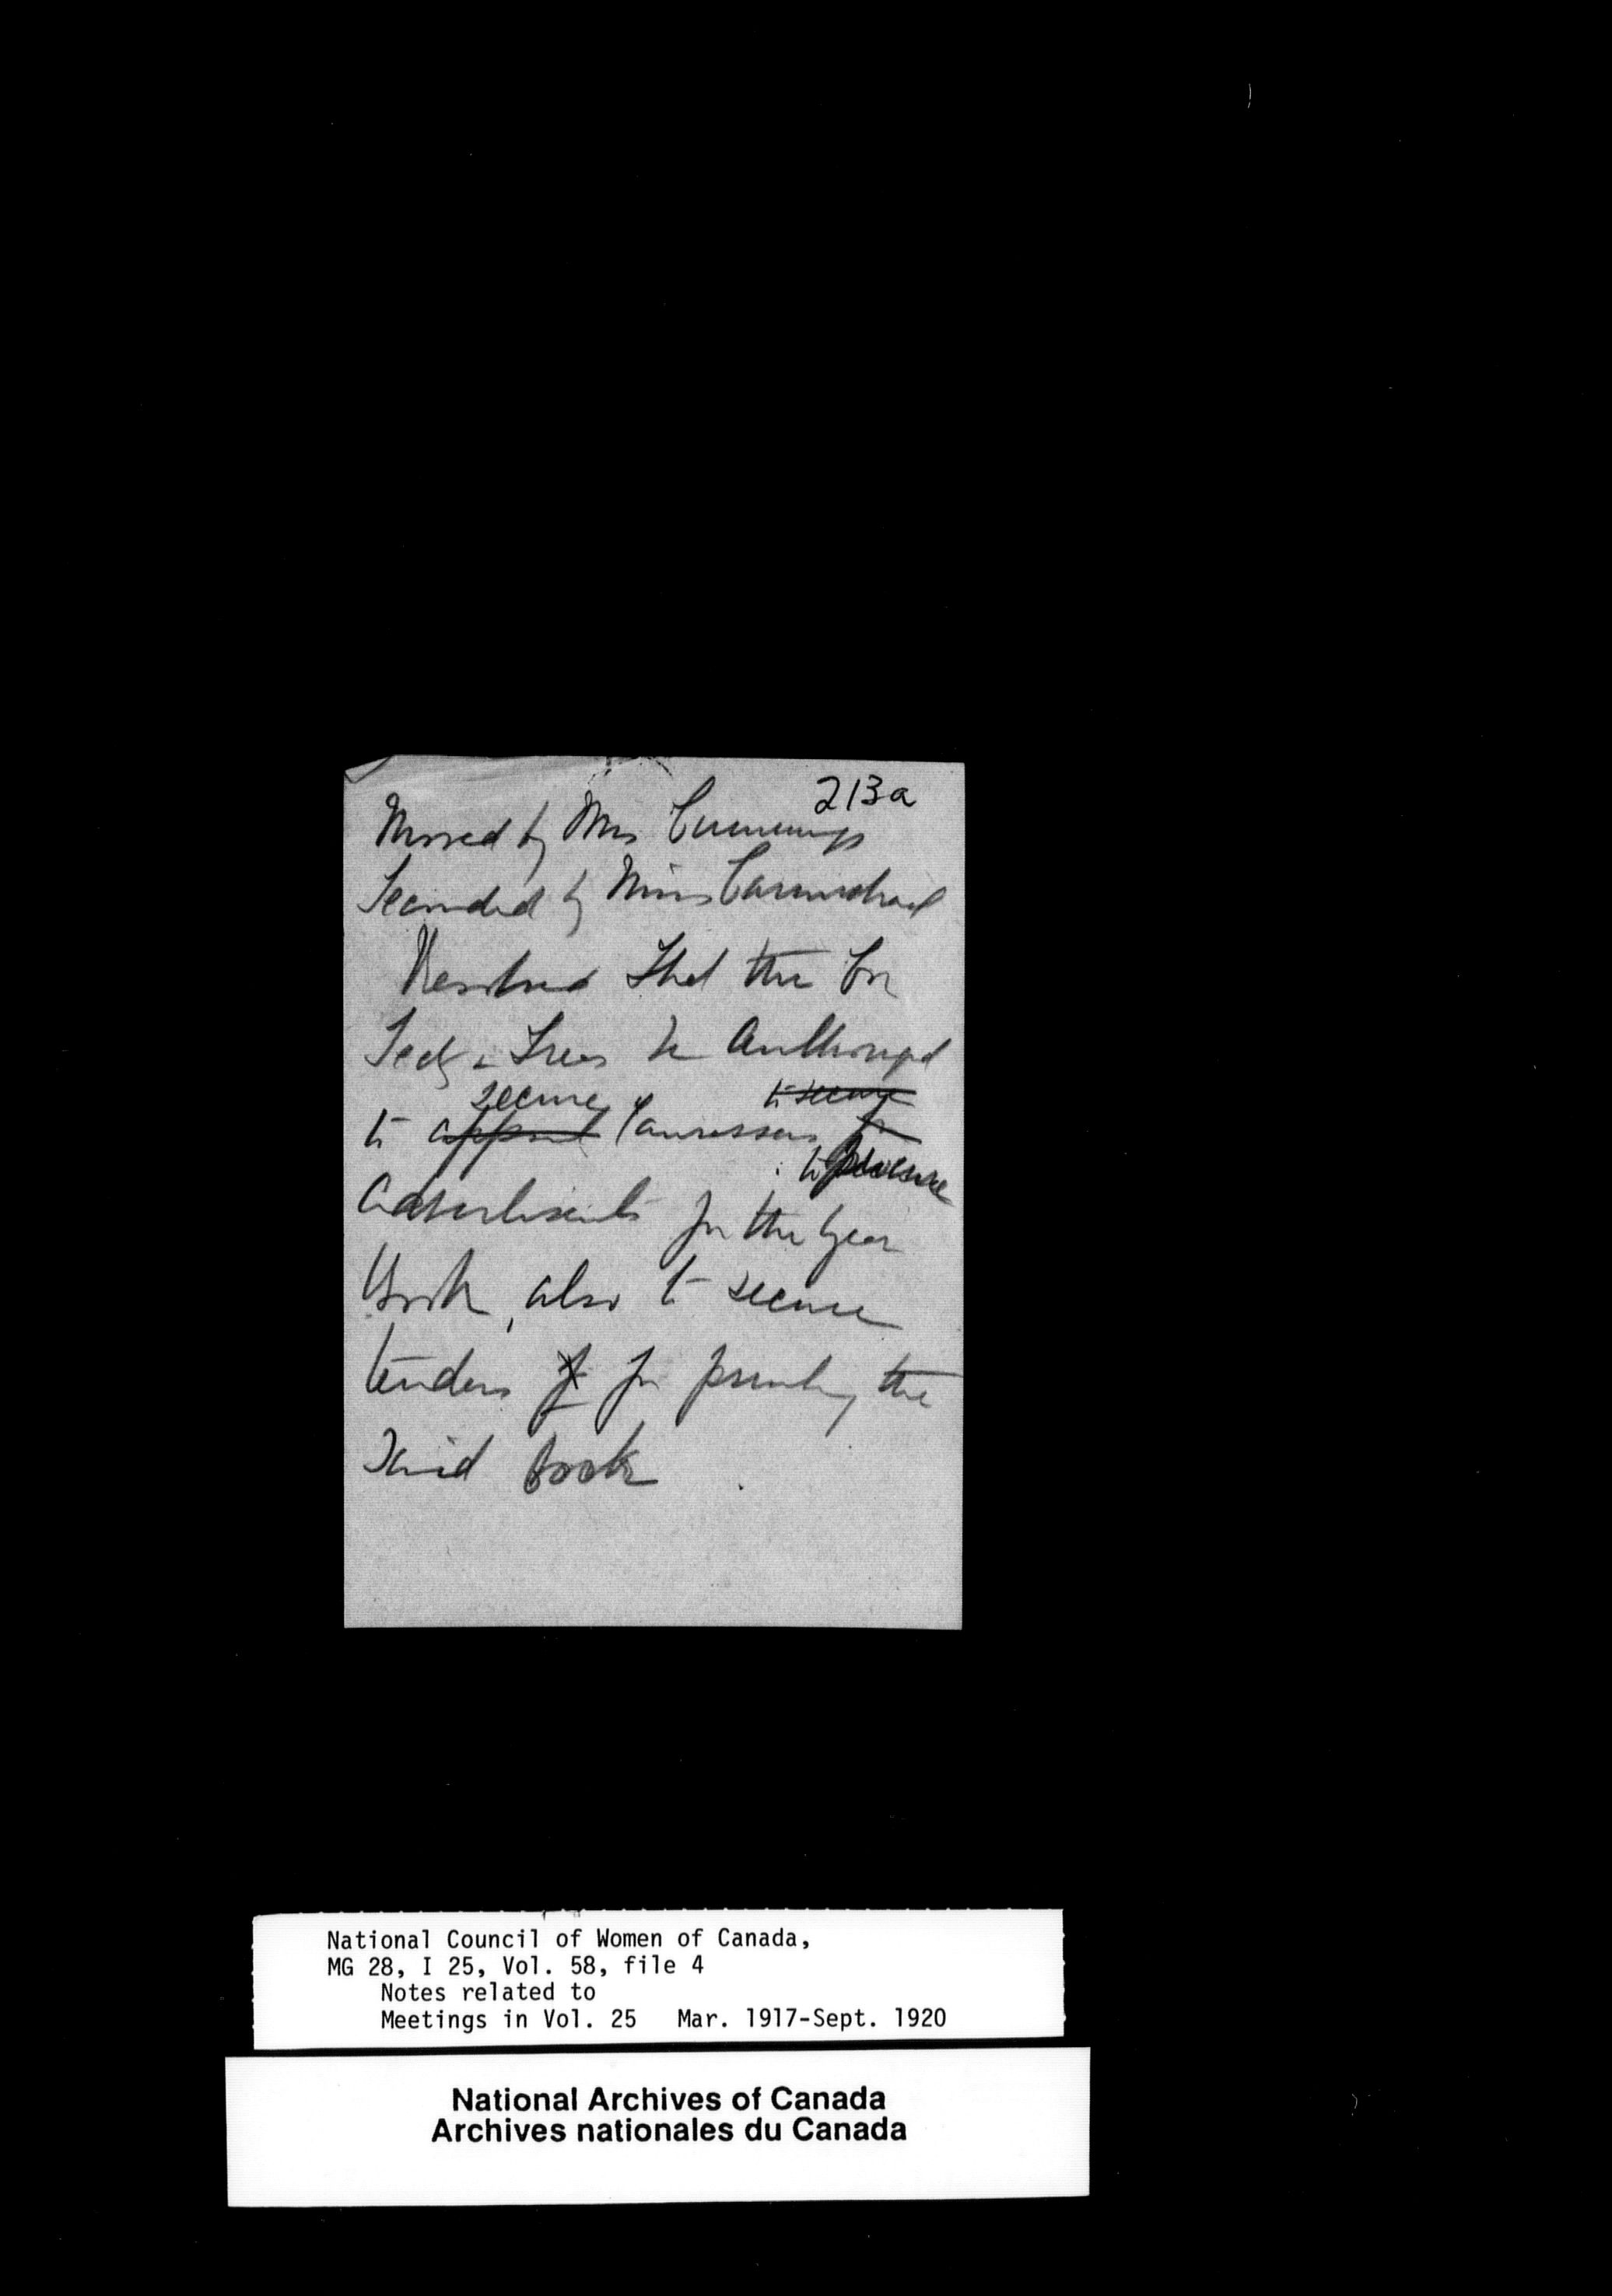 213a
Moved by Mrs Cummings
Seconded by Miss Carmichael
Resolved That the Cor
Secy & Treas be Authorized
secure to secure
to appoint Canvassers for
to procure
Advertisements for the Year
Book, also to secure
tenders f for printing the
Said Book
National Council of Women of Canada,
MG 28, I 25, Vol. 58, file 4
Notes related to
Meetings in Vol. 25 Mar. 1917-Sept. 1920
National Archives of Canada
Archives nationales du Canada